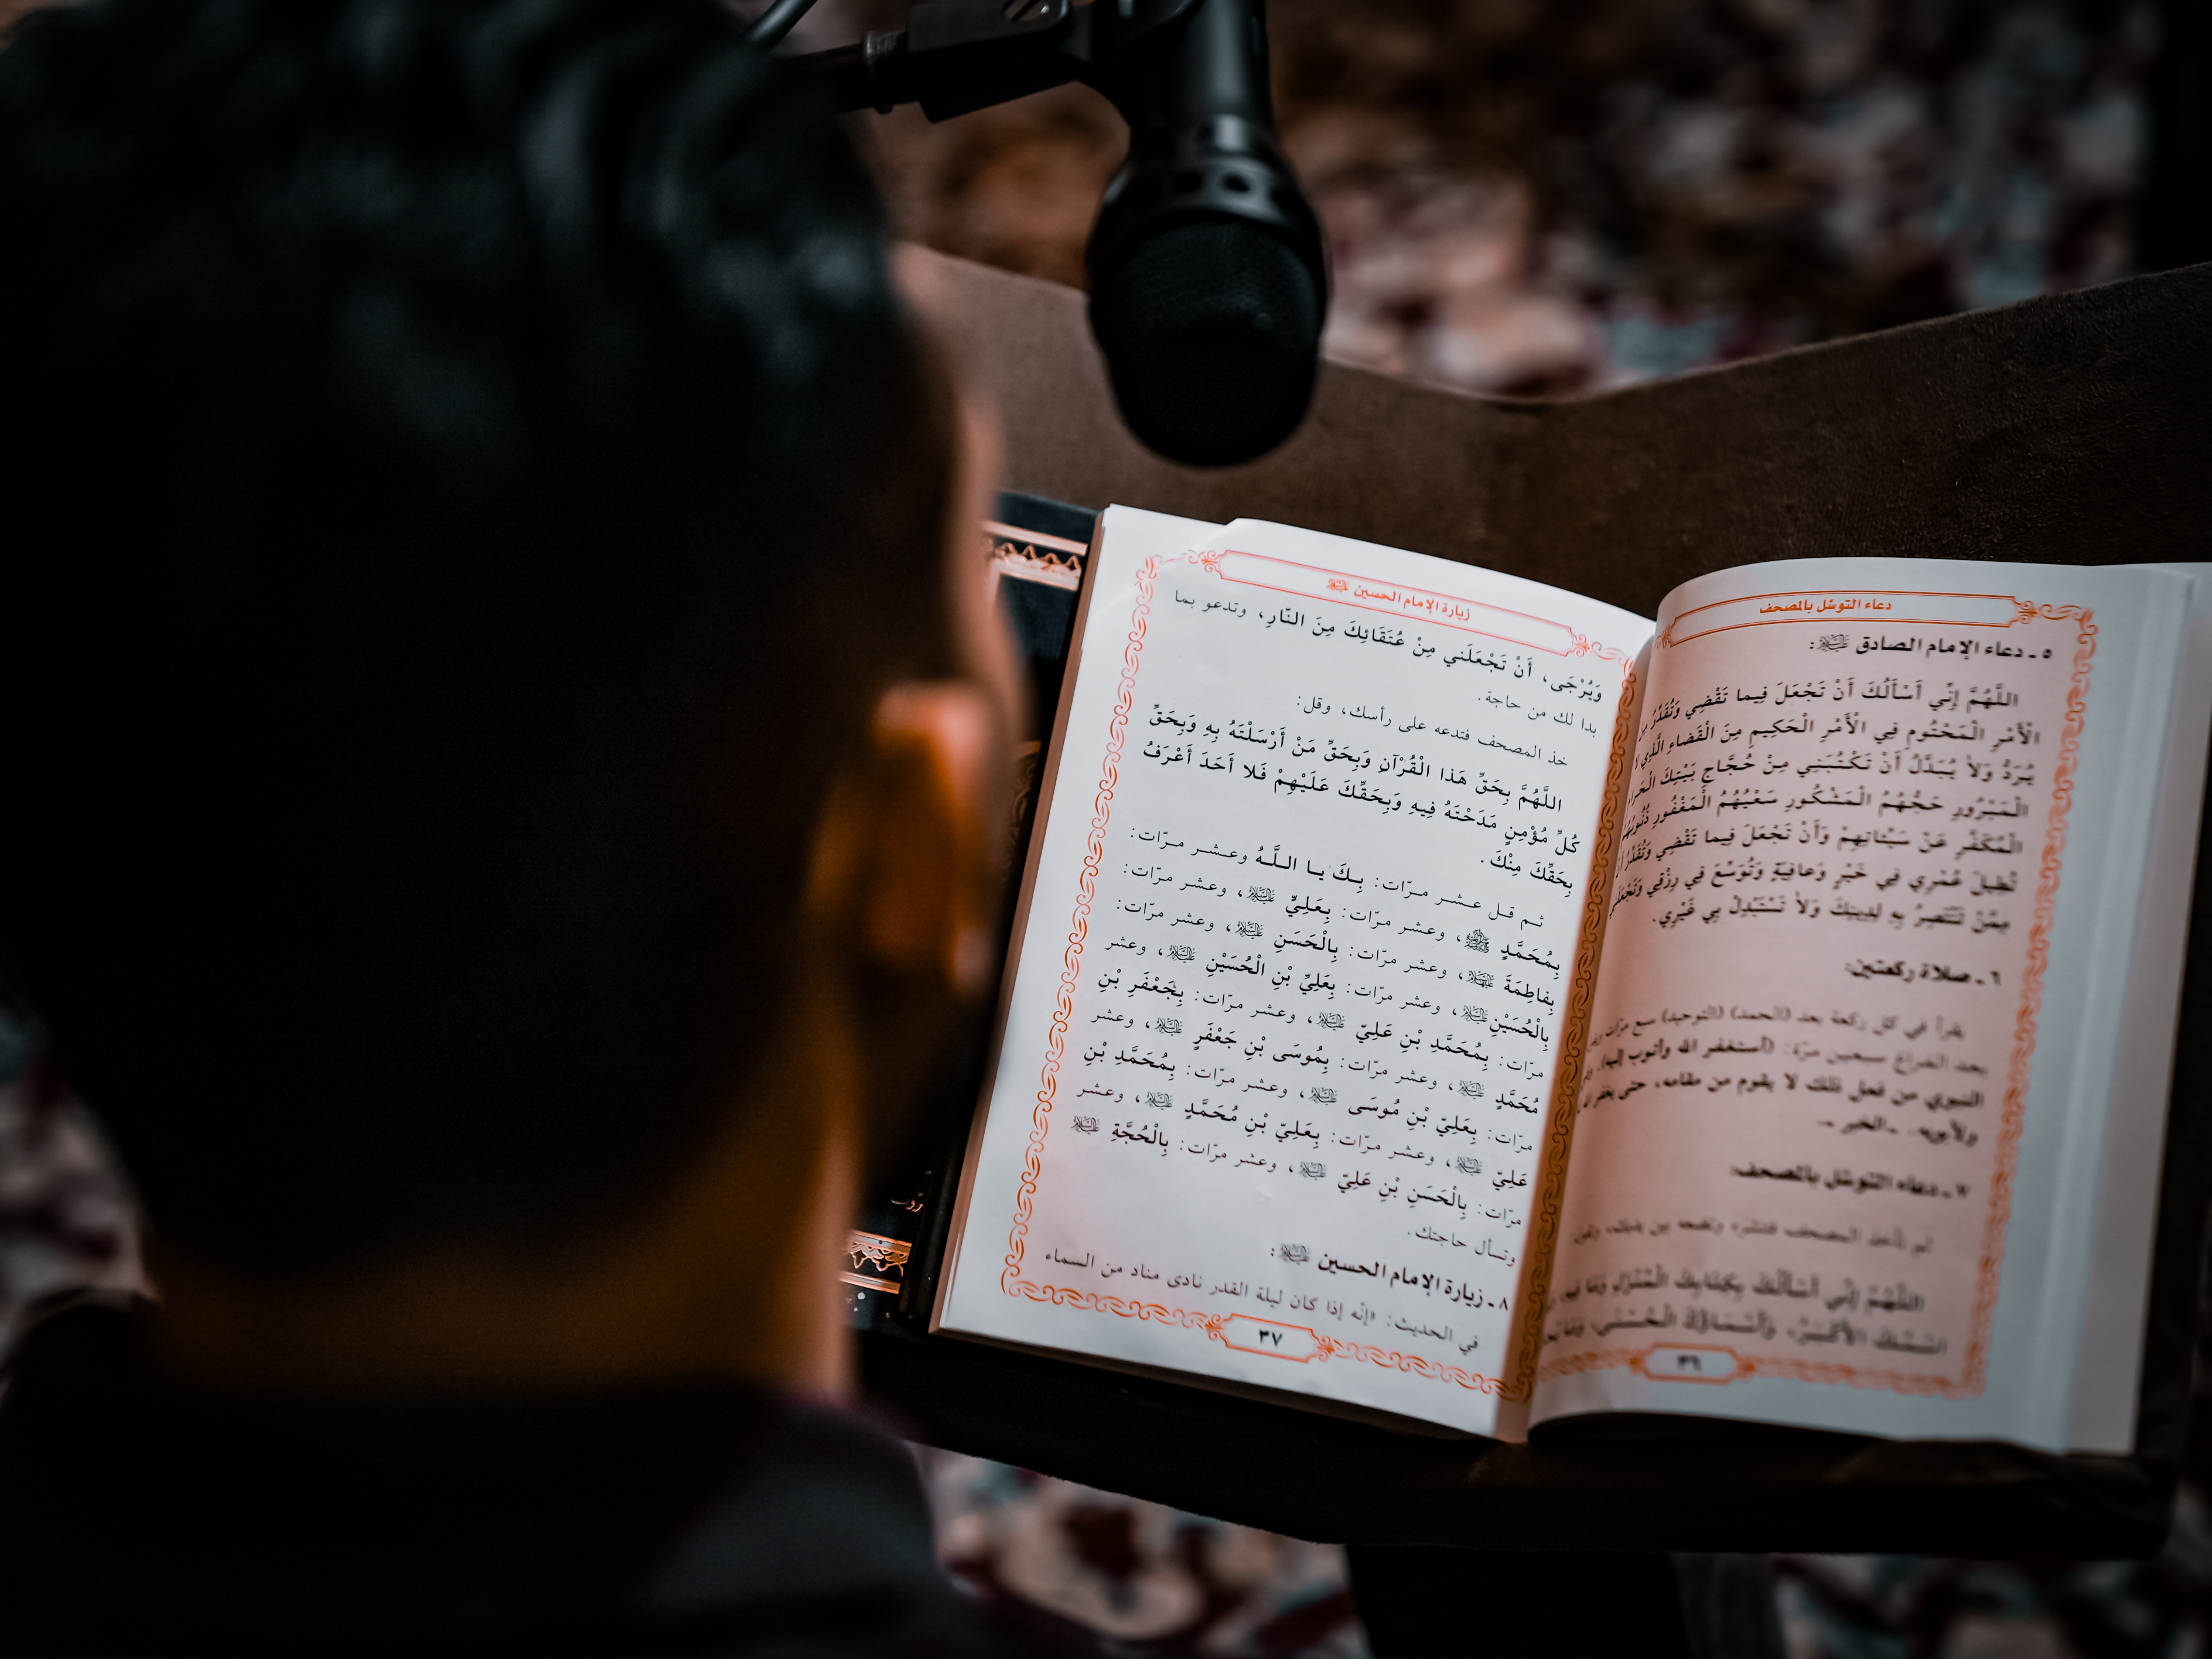 دعاء التوسّل بالمصحف
٥ ـ دعاء الإمام الصادق عليه السلام:
اللَّهُمَّ إِنِّي أَسْأَلُكَ أَنْ تَجْعَلَ فِيما تَقْضِي وَتُقَدِّرُ مِنَ
الْأَمْرِ الْمَحْتُومِ فِي الْأَمْرِ الْحَكِيمِ مِنَ الْقَضاءِ الَّذِي لا
يُرَدُّ وَلاَ يُبَدَّلُ أَنْ تَكْتُبَنِي مِنْ حُجَّاجِ بَيْتِكَ الْحَرامِ
الْمَبْرُورِ حَجُّهُمُ الْمَشْكُورِ سَعْيُهُمُ الْمَغْفُورِ ذُنُوبُهُمُ
الْمُكَفَّرِ عَنْ سَيِّئاتِهِمْ وَأَنْ تَجْعَلَ فِيما تَقْضِي وَتُقَدِّرُ أَنْ
تُطِيلَ عُمْرِي فِي خَيْرٍ وَعافِيَةٍ وَتُوَسِّعَ فِي رِزْقِي وَتَجْعَلَنِي
مِمَّنْ تَنْتَصِرُ بِهِ لِدِينِكَ وَلاَ تَسْتَبْدِلْ بِي غَيْرِي.
٦ ـ صلاة ركعتين:
يقرأ في كل ركعة بعد (الحمد) (التوحيد) سبع مرّات
بعد الفراغ سبعين مرّة: (أستغفر الله وأتوب إليه).
النبوي من فعل ذلك لا يقوم من مقامه، حتى يغفر الله
ولأبويه. ـ الخبر ـ.
٧ ـ دعاء التوسّل بالمصحف:
ثم تأخذ المصحف فتنشره وتضعه بين يديك، وتقول:
اللَّهُمَّ إِنِّي أَسْأَلُكَ بِكِتابِكَ الْمُنْزَلِ وَمَا فِيهِ
اسْمُكَ الْأَكْبَرُ، وَأَسْمَاؤُكَ الْحُسْنَى، وَمَا
٣٦
زيارة الإمام الحسين عليه السلام
وَيُرْجَى، أَنْ تَجْعَلَني مِنْ عُتَقَائِكَ مِنَ النّارِ، وتدعو بما
بدا لك من حاجة.
خذ المصحف فتدعه على رأسك، وقل:
اللَّهُمَّ بِحَقِّ هَذا الْقُرْآنِ وَبِحَقِّ مَنْ أَرْسَلْتَهُ بِهِ وَبِحَقِّ
كُلِّ مُؤْمِنٍ مَدَحْتَهُ فِيهِ وَبِحَقِّكَ عَلَيْهِمْ فَلا أَحَدَ أَعْرَفُ
بِحَقِّكَ مِنْكَ.
ثم قل عشر مرّات: بِكَ يا اللَّهُ وعشر مرّات:
بِمُحَمَّدٍ ﷺ، وعشر مرّات: بِعَلِيٍّ عليه السلام، وعشر مرّات:
بِفاطِمَةَ عليها السلام، وعشر مرّات: بِالْحَسَنِ عليه السلام، وعشر مرّات:
بِالْحُسَيْنِ عليه السلام، وعشر مرّات: بِعَلِيِّ بْنِ الْحُسَيْنِ عليه السلام، وعشر
مرّات: بِمُحَمَّدِ بْنِ عَلِيّ عليه السلام، وعشر مرّات: بِجَعْفَرِ بْنِ
مُحَمَّدٍ عليه السلام، وعشر مرّات: بِمُوسَى بْنِ جَعْفَرٍ عليه السلام، وعشر
مرّات: بِعَلِيّ بْنِ مُوسَى عليه السلام، وعشر مرّات: بِمُحَمَّدِ بْنِ
عَلِيّ عليه السلام، وعشر مرّات: بِعَلِيّ بْنِ مُحَمَّدٍ عليه السلام، وعشر
مرّات: بِالْحَسَنِ بْنِ عَلِيّ عليه السلام، وعشر مرّات: بِالْحُجَّةِ عليه السلام
وتسأل حاجتك.
٨ ـ زيارة الإمام الحسين عليه السلام:
في الحديث: «إنّه إذا كان ليلة القدر نادى مناد من السماء
٣٧